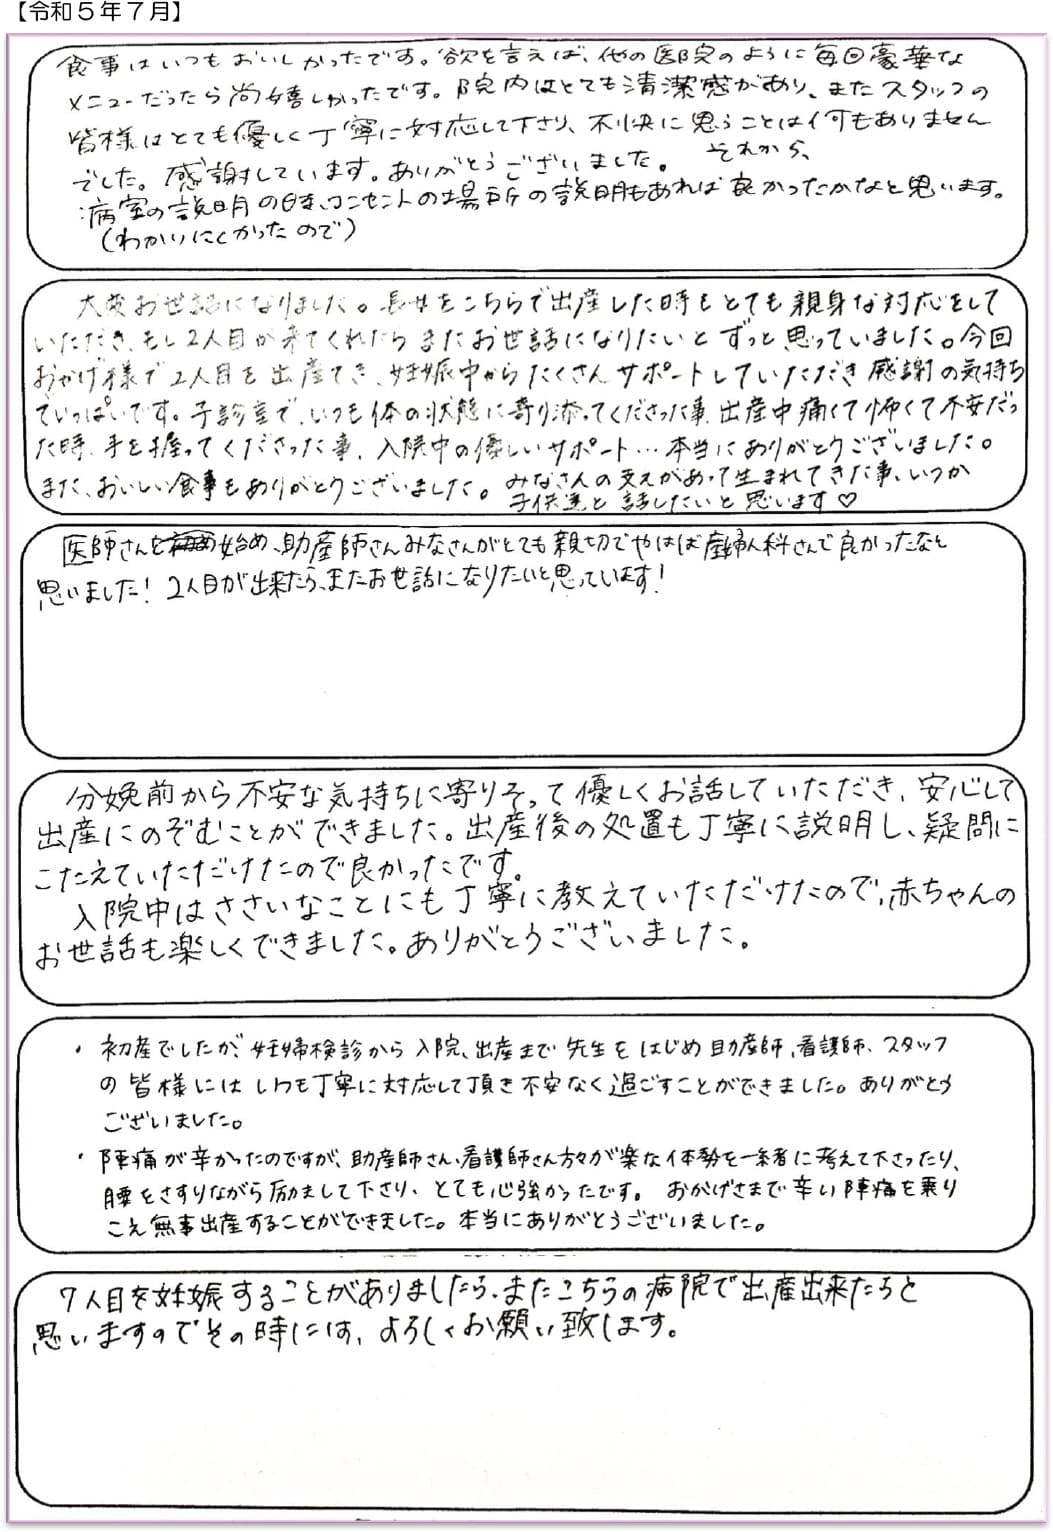 【令和５年７月】
食事はいつもおいしかったです。欲を言えば、他の医院のように毎回豪華な
メニューだったら尚嬉しかったです。院内はとても清潔感があり、またスタッフの
皆様はとても優しく丁寧に対応して下さり、不快に思うことは何もありません
でした。感謝しています。ありがとうございました。それから、
病室の説明の時、コンセントの場所の説明もあれば良かったかなと思います。
(わかりにくかったので)
大変お世話になりました。長女をこちらで出産した時もとても親身な対応をして
いただき、もし2人目が来てくれたらまたお世話になりたいとずっと思っていました。今回
おかげ様で2人目を出産でき、妊娠中からたくさんサポートしていただき感謝の気持ち
でいっぱいです。子診室で、いつも体の状態に寄り添ってくださった事、出産中痛くて怖くて不安だっ
た時、手を握ってくださった事、入院中の優しいサポート…本当にありがとうございました。
また、おいしい食事もありがとうございました。みなさんの支えがあって生まれてきた事、いつか
子供達と話したいと思います♡
医師さんを始め、助産師さんみなさんがとても親切でやはば産婦人科さんで良かったなと
思いました！2人目が出来たら、またお世話になりたいと思っています！
分娩前から不安な気持ちに寄りそって優しくお話していただき、安心して
出産にのぞむことができました。出産後の処置も丁寧に説明し、疑問に
こたえていただけたので良かったです。
入院中はささいなことにも丁寧に教えていただけたので、赤ちゃんの
お世話も楽しくできました。ありがとうございました。
・初産でしたが、妊婦検診から入院、出産まで先生をはじめ助産師、看護師、スタッフ
の皆様にはいつも丁寧に対応して頂き不安なく過ごすことができました。ありがとう
ございました。
・陣痛が辛かったのですが、助産師さん、看護師さん方々が楽な体勢を一緒に考えて下さったり、
腰をさすりながら励まして下さり、とても心強かったです。おかげさまで辛い陣痛を乗り
こえ無事出産することができました。本当にありがとうございました。
7人目を妊娠することがありましたら、またこちらの病院で出産出来たらと
思いますのでその時には、よろしくお願い致します。